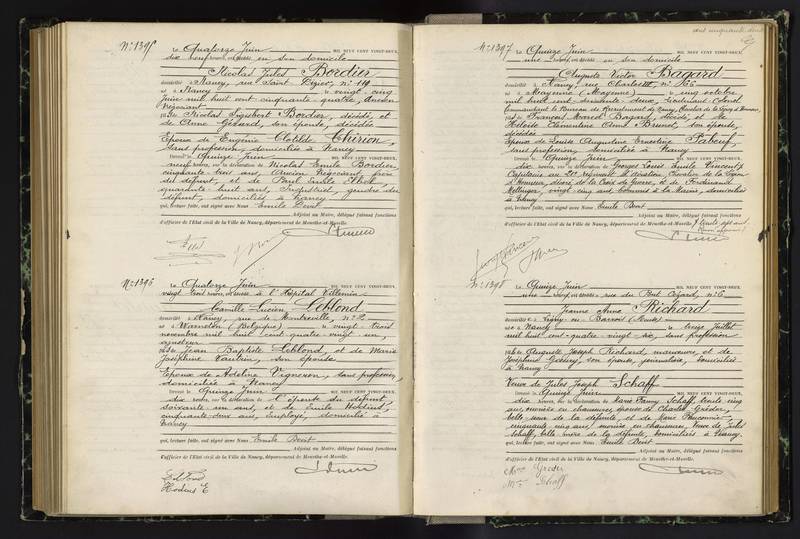 N° 1395 Le Quatorze Juin MIL NEUF CENT VINGT-DEUX,
dix neuf heures, est décédé en son domicile
Nicolas Jules Bordier
domicilié à Nancy, rue Saint Dizier, n° 119
né à Nancy le vingt cinq
Juin mil huit cent cinquante quatre, ancien
négociant
fils de Nicolas Sigisbert Bordier, décédé, et
de Anne Gérard, son épouse, décédée
Epoux de Eugénie Clotilde Chirion,
sans profession, domiciliée à Nancy
Dressé le Quinze Juin MIL NEUF CENT VINGT-DEUX,
neuf heures, sur la déclaration de Nicolas Emile Bordier,
cinquante trois ans, ancien négociant, frère
du défunt, et de Paul Emile
quarante huit ans, Industriel, gendre du
défunt, domiciliés à Nancy
qui, lecture faite, ont signé avec Nous Emile Bout
Adjoint au Maire, délégué faisant fonctions
d'officier de l'Etat civil de la Ville de Nancy, département de Meurthe-et-Moselle.
N° 1396 Le Quatorze Juin MIL NEUF CENT VINGT-DEUX,
vingt trois heures, est décédé à l'Hôpital Villemin
Camille Lucien Leblond
domicilié à Nancy, rue de n° 2
né à Warneton (Belgique) le vingt trois
novembre mil huit cent quatre vingt un,
fils de Jean Baptiste Leblond, et de Marie
Joséphine son épouse
Epoux de Adeline Vigneron, sans profession,
domiciliée à Nancy
Dressé le Quinze Juin MIL NEUF CENT VINGT-DEUX,
dix heures, sur la déclaration de l'épouse du défunt,
soixante un ans, et de Emile Hodins,
cinquante deux ans, employé, domicilié à
Nancy
qui, lecture faite, ont signé avec Nous Emile Bout
Adjoint au Maire, délégué faisant fonctions
d'officier de l'Etat civil de la Ville de Nancy, département de Meurthe-et-Moselle.
Hodins E
N° 1397 Le Quinze Juin MIL NEUF CENT VINGT-DEUX,
une heure, est décédé en son domicile
Auguste Victor Bagard
domicilié à Nancy, rue Charles III, n° 166
né à Mayenne (Mayenne) le cinq octobre
mil huit cent soixante-deux, Lieutenant Colonel
Commandant le Bureau de Recrutement de Nancy, Chevalier de la Légion d'Honneur,
fils de François Marcel Bagard, décédé, et de
Héloïse Clémentine Aimée Brunel, son épouse,
décédée
Epoux de Louise Augustine Ernestine Pabeuf,
sans profession, domiciliée à Nancy
Dressé le Quinze Juin MIL NEUF CENT VINGT-DEUX,
dix heures, sur la déclaration de Georges Louis Emile Vincent,
Capitaine au 20e régiment d'aviation, Chevalier de la Légion
d'Honneur, décoré de la Croix de Guerre, et de Ferdinand
vingt cinq ans, à la Mairie, domiciliés
à Nancy
qui, lecture faite, ont signé avec Nous Emile Bout
Adjoint au Maire, délégué faisant fonctions
d'officier de l'Etat civil de la Ville de Nancy, département de Meurthe-et-Moselle.
N° 1398 Le Quinze Juin MIL NEUF CENT VINGT-DEUX,
une heure, est décédée rue du Pont n° 6
Jeanne Anne Richard
domiciliée à Ligny en Barrois (Meuse)
née à Nancy le treize Juillet
mil huit cent quatre vingt six, sans profession
fille de Auguste Joseph Richard, manœuvre, et de
Joséphine son épouse, journalière, domiciliés
à Nancy
Veuve de Jules Joseph Schaff
Dressé le Quinze Juin MIL NEUF CENT VINGT-DEUX,
dix heures, sur la déclaration de Marie Fanny Schaff, trente cinq
ans, ouvrière en chaussures, épouse de Charles Gréder,
belle sœur de la défunte, et de Marie
cinquante cinq ans, ouvrière en chaussures, veuve de Jules
Schaff, belle mère de la défunte, domiciliées à Nancy
qui, lecture faite, ont signé avec Nous Emile Bout
Adjoint au Maire, délégué faisant fonctions
d'officier de l'Etat civil de la Ville de Nancy, département de Meurthe-et-Moselle.
Mme Greder
Mme Schaff